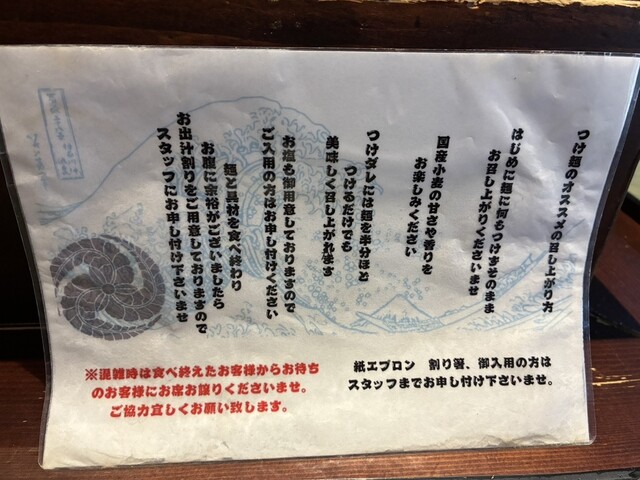 つけ麺のオススメの召し上がり方
はじめに麺に何もつけずそのまま
お召し上がりくださいませ
国産小麦の甘さや香りを
お楽しみください
つけダレには麺を半分ほど
つけるだけでも
美味しく召し上がれます
お塩も御用意しておりますので
ご入用の方はお申し付けください
麺と具材を食べ終わり
お腹に余裕がございましたら
お出汁割りをご用意しておりますので
スタッフにお申し付け下さいませ
紙エプロン 割り箸、御入用の方は
スタッフまでお申し付け下さいませ。
※混雑時は食べ終えたお客様からお待ち
のお客様にお席お譲りくださいませ。
ご協力宜しくお願い致します。